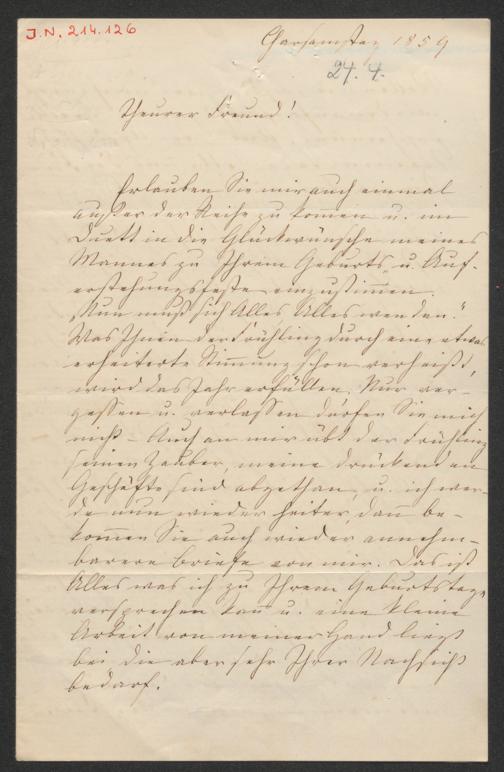 J.N. 214.126
Charsamstag 1859
24. 4.
Theurer Freund!
Erlauben Sie mir auch einmal
außer der Reihe zu kom̄en u. im
Duett in die Glückwünsche meines
Mannes zu Ihrem Geburts- u. Auf-
erstehungsfeste einzustim̄en.
„Nun muß sich Alles Alles wenden."
Was Ihnen der Frühling durch eine etwas
erheiterte Stim̄ung schon verheißt,
wird das Jahr erfüllen. Nur ver-
gessen u. verlassen dürfen Sie mich
nicht – Auch an mir übt der Frühling
seinen Zauber, meine drückenden
Geschäfte sind abgethan, u. ich wer-
de nun wieder heiter, dan̄ be-
kom̄en Sie auch wieder annehm-
barere Briefe von mir. Das ist
Alles was ich zu Ihrem Geburtstage
versprechen kan̄ u. eine kleine
Arbeit von meiner Hand liegt
bei die aber sehr Ihrer Nachsicht
bedarf.